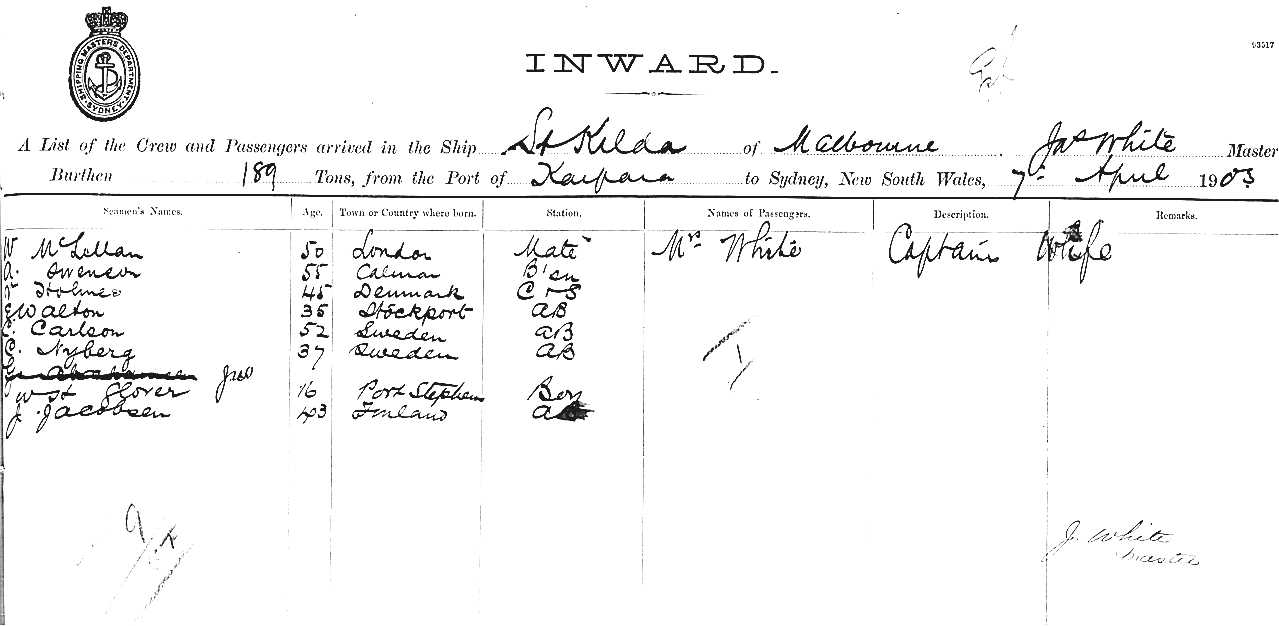 SHIPPING MASTERS DEPARTMENT
SYDNEY
93517
INWARD.
A List of the Crew and Passengers arrived in the Ship St Kilda of Malbourne Jas White Master
Burthen 189 Tons, from the Port of Kaipara to Sydney, New South Wales, 7th April 1903
Seamen's Names. Age. Town or Country where born. Station. Names of Passengers. Description. Remarks.
W McLellan 50 London Mate Mrs White Captain Wife
A. Swenson 55 Calmar B'sn
Holmes 45 Denmark C & S
E Walton 35 Stockport AB
C. Carlson 52 Sweden AB
C. Nyberg 37 Sweden AB
Glover 16 Port Stephens Boy
J. Jacobsen 43 Finland AB
J. White
Master